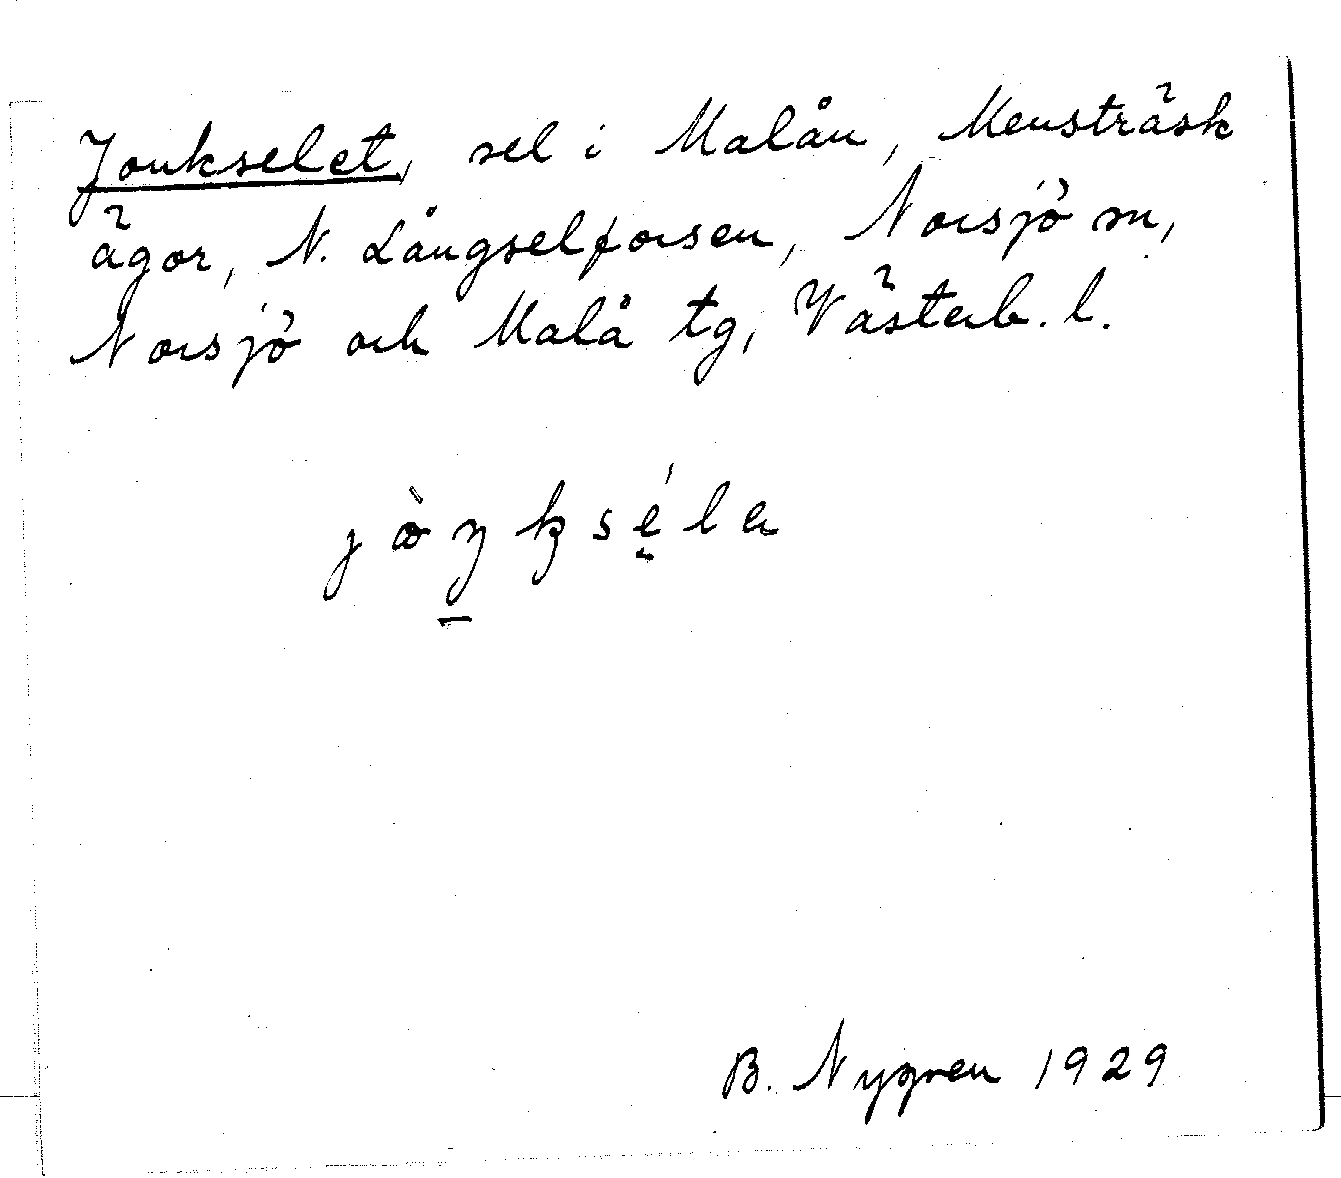 Jonkselet, sel i Malån, Mensträsk
ägor, N. Långselforsen, Norsjö sn,
Norsjö och Malå tg, Västerb. l.
B. Nygren 1929